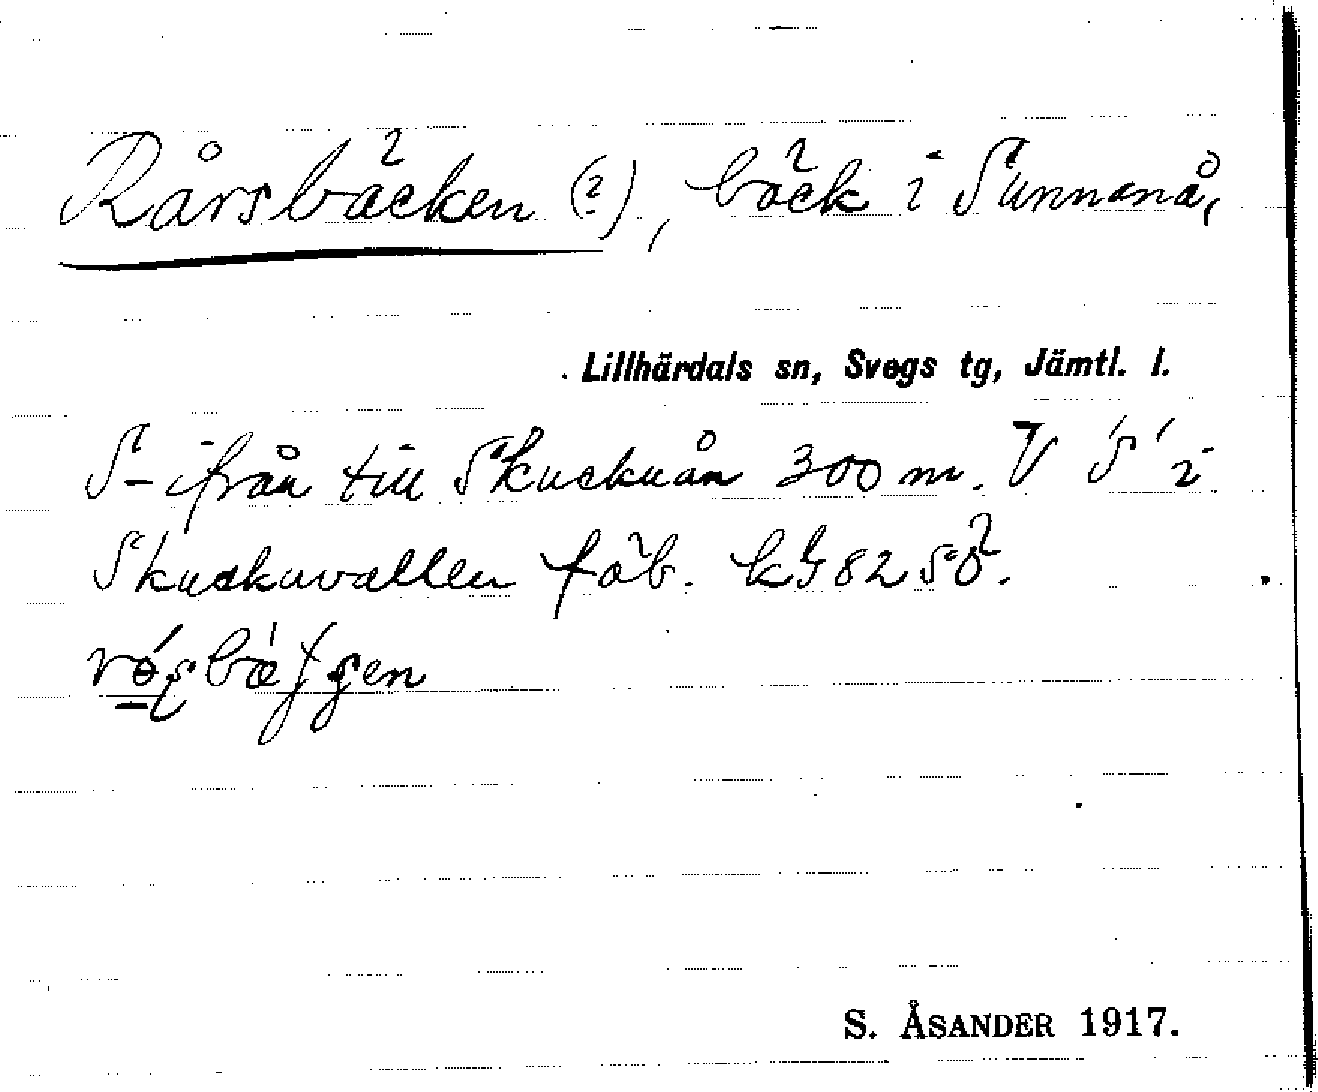 Rårsbäcken (?), bäck i Sunnanå,
Lillhärdals sn, Svegs tg, Jämtl. l.
S-ifrån till Skuckuån 300 m. V S i
Skuckuvallen fäb.
S. ÅSANDER 1917.